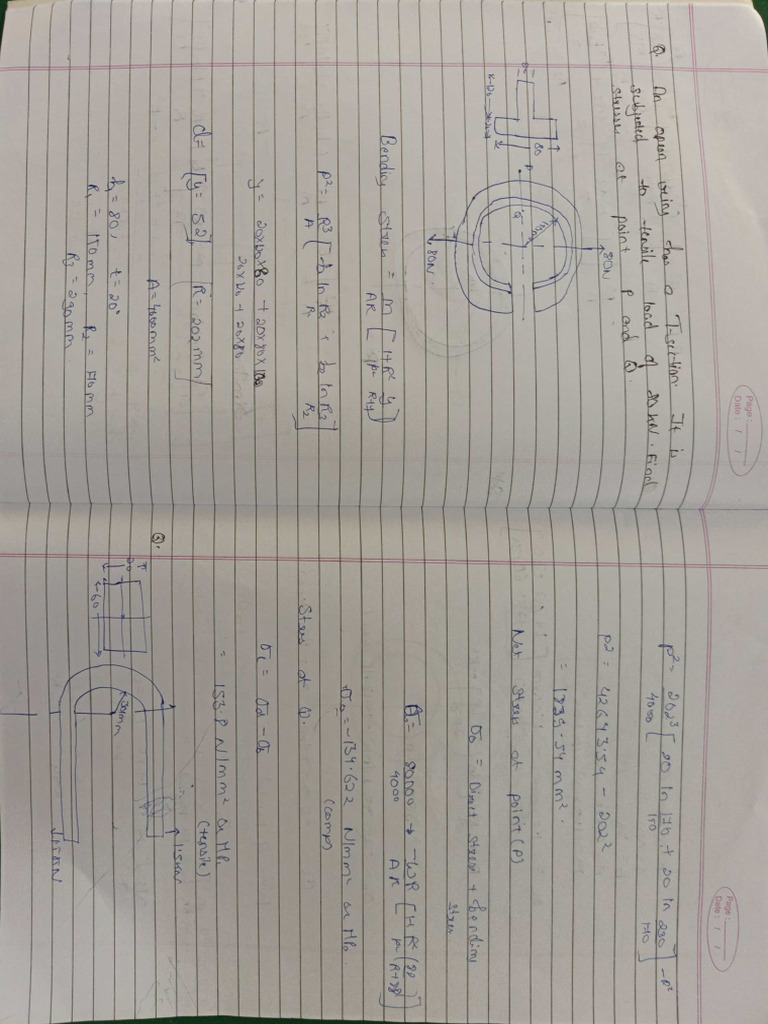 Page:
Date: / /
Q. An open ring has a T-section. It is
subjected to tensile load of 80kN. Find
stresses at point P and Q.
80N
80
P
Q
80N.
Bending stress = M/AR [1+R²/p² y/R+y]
p² = R³/A [b ln R2/R1 + b ln R3/R2]
y = 20x120x80 + 20x80x
20x120 + 20x80
d= [y = 52] R = 202mm
A = 4000mm²
h = 80, t = 20°
R1 = 150mm, R2 = 170mm
R3 = 290mm
Page:
Date: / /
p² = 202³/4000 [ 20 ln 170/150 + 20 ln 290/170 ] - R²
p2 = 42643.54 - 202²
= 1839.54 mm².
Net stress at point (P)
σo = Direct stress + Bending
stress
80000/4000 + -WR/AR [1+ R²/p² (28/R+28)]
= -134.622 N/mm² or MPa
(comp)
Stress at Q.
σi = σd - σb
= 153.8 N/mm² or MPa
(tensile)
Q.
20
60
30mm
1.5kN
1.5kN